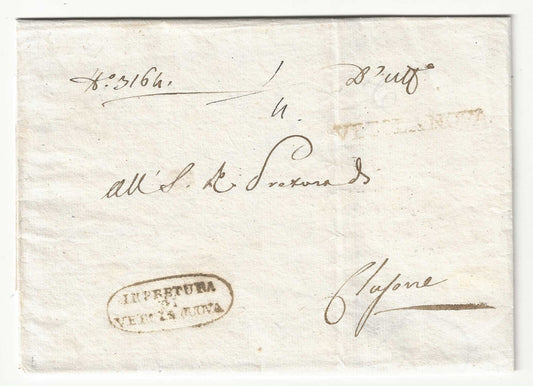 N.º 3164. D'Uff.º
VEROLANUOVA
All' I. R. Pretura di
Clusone
I.R. PRETURA
DI
VEROLANUOVA